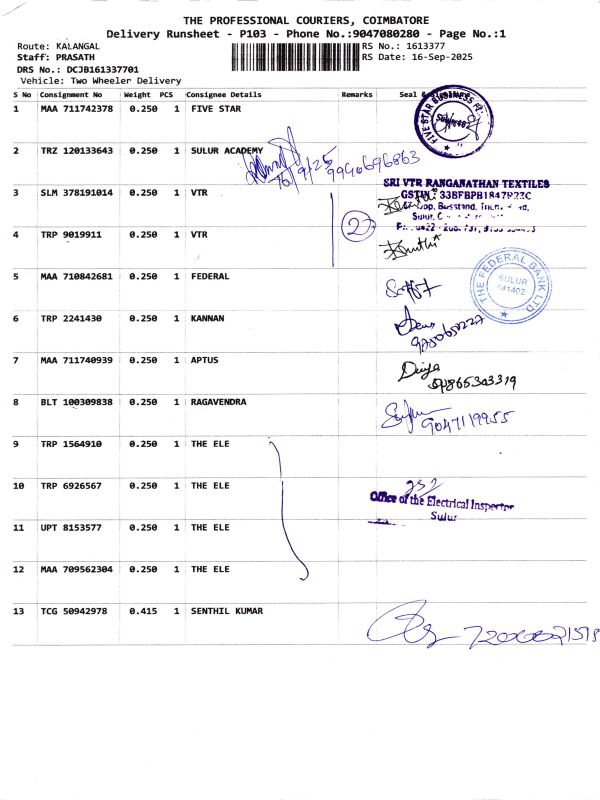 THE PROFESSIONAL COURIERS, COIMBATORE
Delivery Runsheet - P103 - Phone No.:9047080280 - Page No.:1
Route: KALANGAL RS No.: 1613377
Staff: PRASATH RS Date: 16-Sep-2025
DRS No.: DCJB161337701
Vehicle: Two Wheeler Delivery
S No Consignment No Weight PCS Consignee Details Remarks Seal &
1 MAA 711742378 0.250 1 FIVE STAR
FIVE STAR BUSINESS
2 TRZ 120133643 0.250 1 SULUR ACADEMY
16/9/25 9940696863
3 SLM 378191014 0.250 1 VTR
SRI VTR RANGANATHAN TEXTILES
GSTIN: 33BFBPB1847
Busstand,
Sulur,
2
4 TRP 9019911 0.250 1 VTR
5 MAA 710842681 0.250 1 FEDERAL
THE FEDERAL BANK LTD
SULUR
641402
6 TRP 2241430 0.250 1 KANNAN
7 MAA 711740939 0.250 1 APTUS
8 BLT 100309838 0.250 1 RAGAVENDRA
9047119955
9 TRP 1564910 0.250 1 THE ELE
10 TRP 6926567 0.250 1 THE ELE
Office of the Electrical Inspector
Sulur
11 UPT 8153577 0.250 1 THE ELE
12 MAA 709562304 0.250 1 THE ELE
13 TCG 50942978 0.415 1 SENTHIL KUMAR